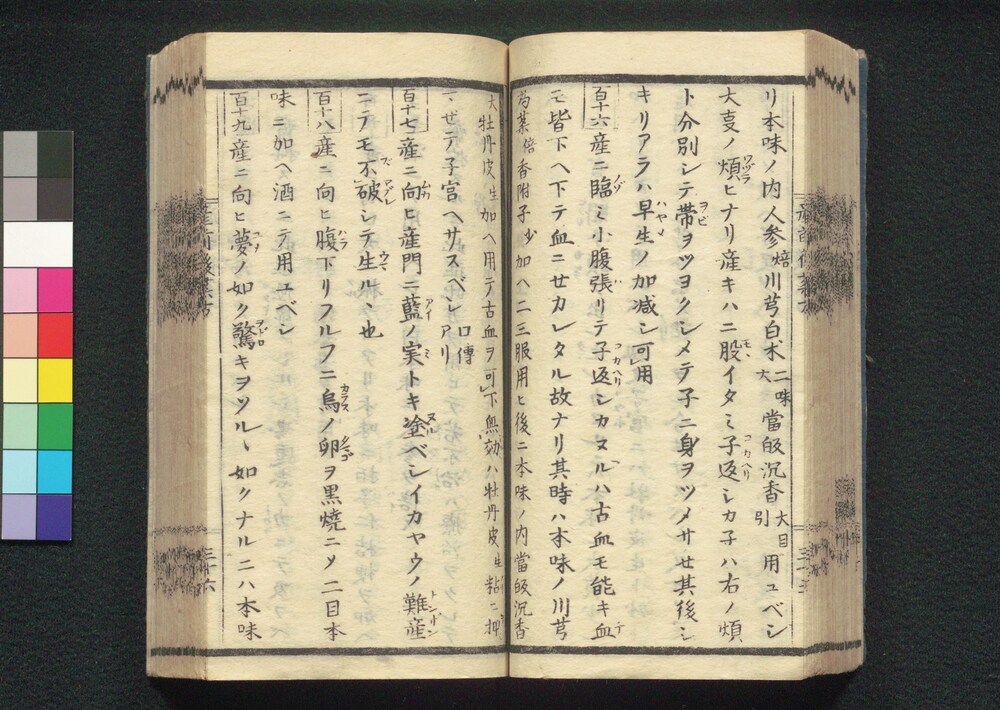 リ本味ノ内人参焙川芎白朮二味大當皈沉香大目引用ユベシ
大事ノ煩ヒナリ産キハニ股イタミ子返シカ子ハ右ノ煩
ト分別シテ帯ヲツヨクシメテ子ニ身ヲツメサせ其後シ
キリアラハ早生ノ加减シ可用
百十六産ニ臨ミ小腹張リテ子返シカヌルハ古血モ能キ血
モ皆下ヘ下テ血ニせカレタル故ナリ其時ハ本味ノ川芎
芍薬倍香附子少加ヘ二三服用ヒ後ニ本味ノ内當皈沉香
大牡丹皮生加ヘ用テ古血ヲ可下無効ハ牡丹皮生粘ニ押
マぜテ子宮ヘサスベシ口傳アリ
百十七産ニ向ヒ産門ニ藍ノ実トキ塗ベシイカヤウノ難産
ニテモ不破シテ生ルヽ也
百十八産ニ向ヒ腹下リフルフニ烏ノ卵ヲ黒焼ニメ二目本
味ニ加ヘ酒ニテ用ユベシ
百十九産ニ向ヒ夢ノ如ク驚キヲソルヽ如クナルニハ本味
三十六